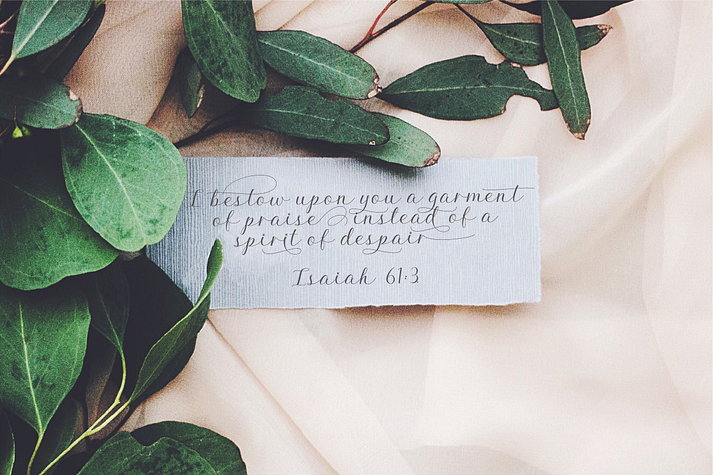 I bestow upon you a garment
of praise instead of a
spirit of despair
Isaiah 61:3